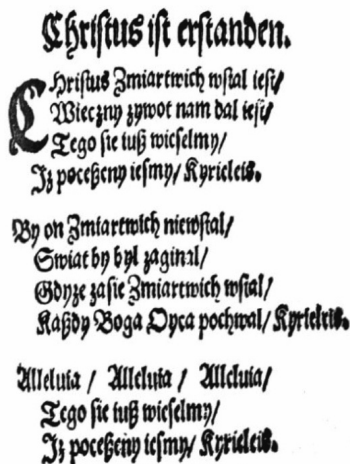 Christus ist erstanden.
CHristus Zmiartwich wstal iest/
Wieczny zywot nam dal iest/
Tego sie tuß wieselmy/
Jż poceßeny iesmy/ Kyrieleis.
By on Zmiartwich niewstal/
Swiat by byl zaginal/
Gdyże zasie Zmiartwich wstal/
Kaßdy Boga Oyca pochwal/ Kyrieleis.
Alleluia / Alleluia / Alleluia/
Tego sie tuß wieselmy/
Jż poceßeny iesmy/ Kyrieleis.